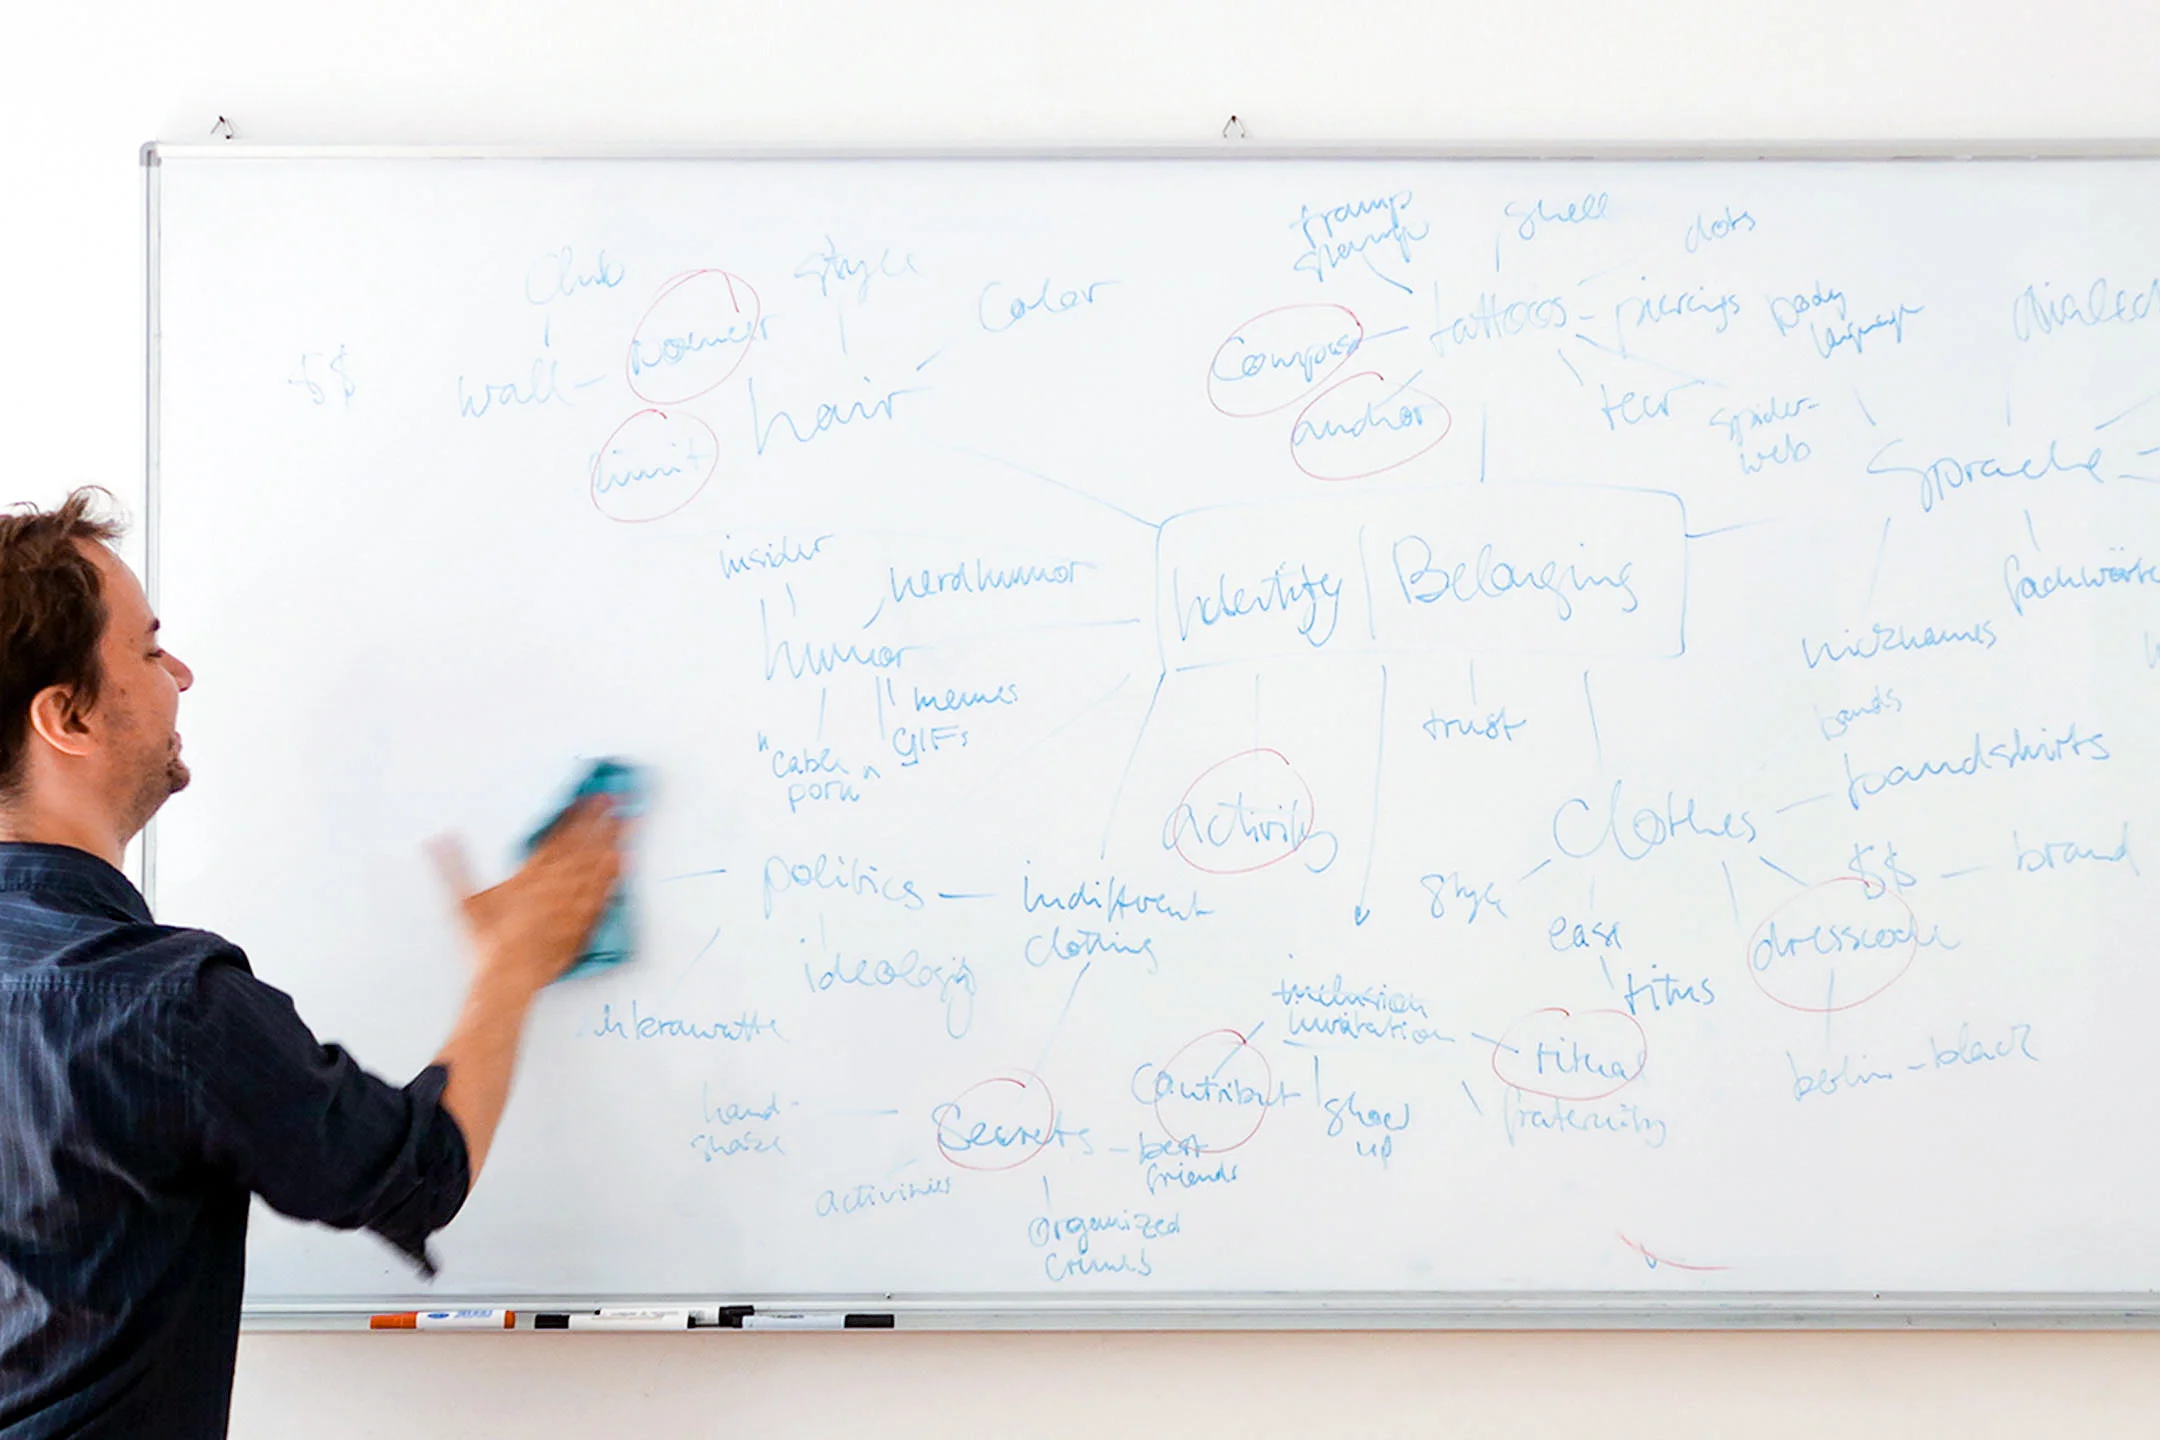 tramp
stamp
shell
dots
Club
style
Color
$$
wall
bouncer
hair
limit
Compass
tattoos
piercings
body
language
anchor
tear
spider-
web
Sprache
insider
nerdhumor
humor
memes
GIFs
"Cable
porn"
Identity
Belonging
trust
activity
nicknames
bands
bandshirts
Clothes
$$
brand
style
ease
dresscode
titus
berlin-black
politics
indifferent
clothing
ideology
inclusion
invitation
ritual
Contribut
show
up
fraternity
hand-
shake
Secrets
best
friends
activities
organized
crimes